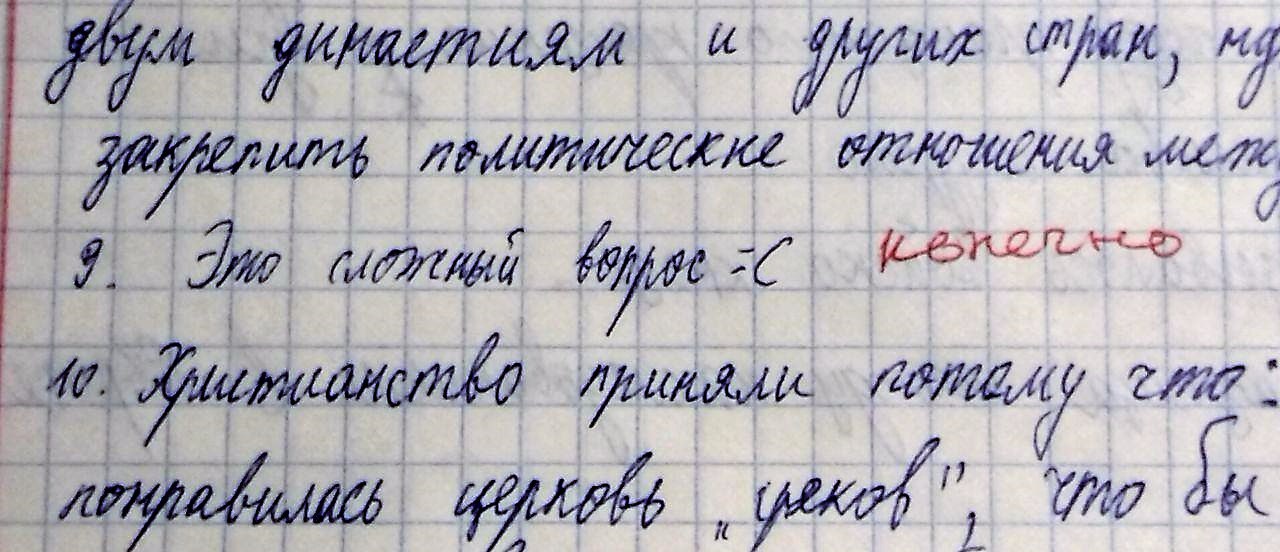 двум династиям и других стран,
закрепить политические отношения меж
9. Это сложный вопрос =С конечно
10. Христианство приняли потому что:
понравилась церковь „греков", что бы